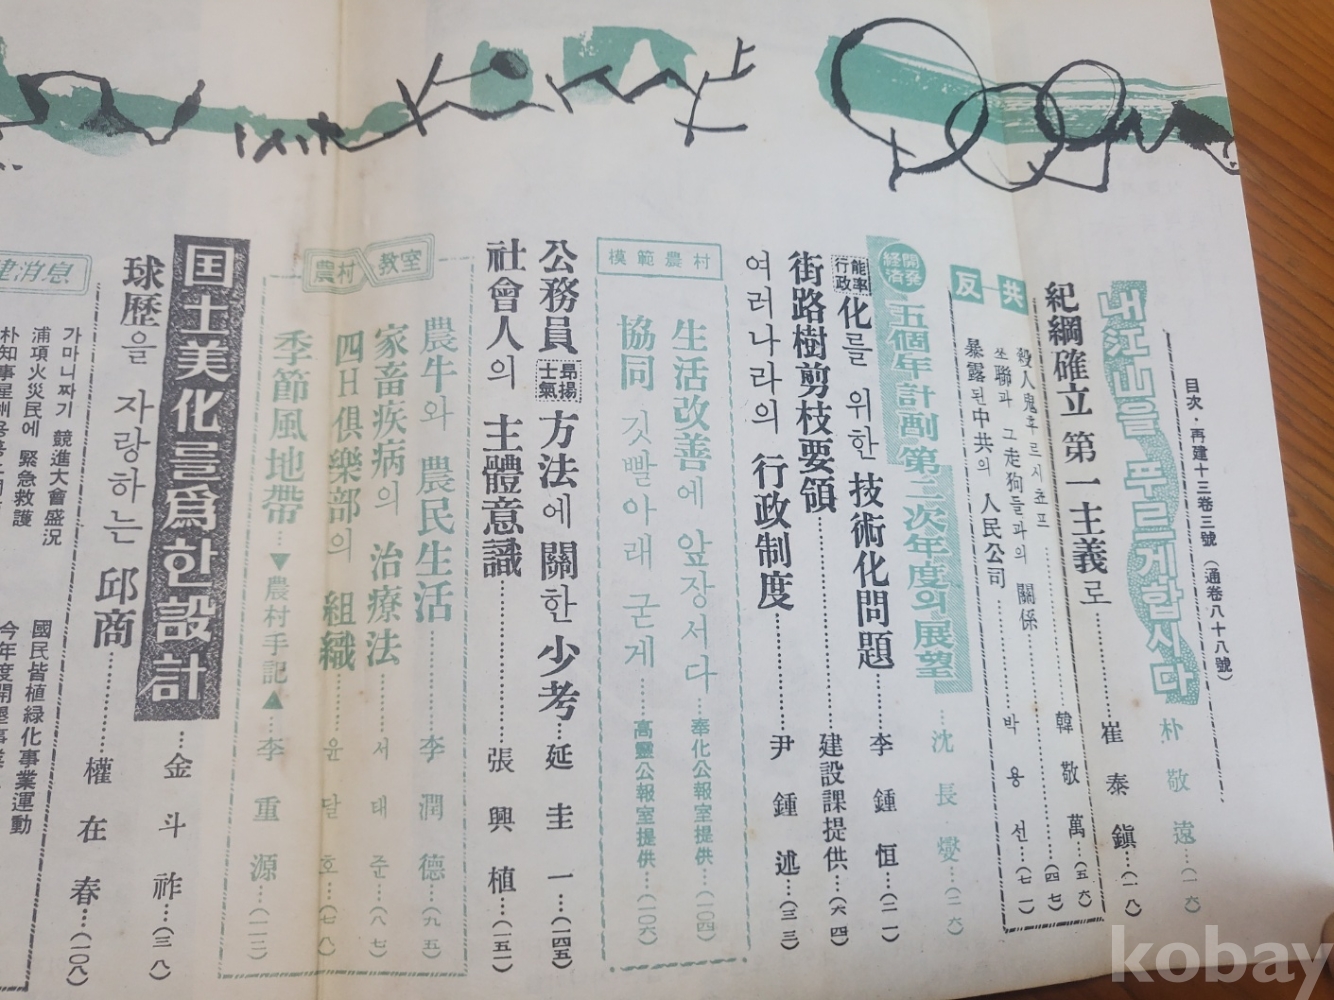 目次·再建十三卷三號（通卷八十八號）
내江山을 푸르게합시다 朴敬遠…(一六)
紀綱確立 第一主義로 崔泰鎭…(一八)
反共
殺人鬼후르시쵸프 韓敬萬…(五六)
쏘聯과 그走狗들과의 關係 (四七)
暴露된中共의 人民公司 박용선…(七一)
経済開発 五個年計劃第二次年度의展望 沈長燮…(二六)
能率行政化를 위한 技術化問題 李鍾恒…(二一)
街路樹剪枝要領 建設課提供…(六四)
여러나라의 行政制度 尹鍾述…(三三)
模範農村
生活改善에 앞장서다 奉化公報室提供…(一〇四)
協同 깃빨아래 굳게 高靈公報室提供…(一〇六)
公務員士氣昻揚方法에 關한 少考…延圭一…(一四五)
社會人의 主體意識 張興植…(一五一)
農村教室
農牛와 農民生活 李潤德…(九五)
家畜疾病의 治療法 서태준…(八七)
四H俱樂部의 組織 윤달호…(七八)
季節風地帶…▼農村手記▲…李重源…(一一三)
国土美化를爲한設計…金斗祚…(三八)
球歷을 자랑하는 邱商 權在春…(一〇八)
消息
가마니짜기 競進大會盛況
浦項火災民에 緊急救護
朴知事星州
國民皆植緑化事業運動
今年度開墾事業
kobay